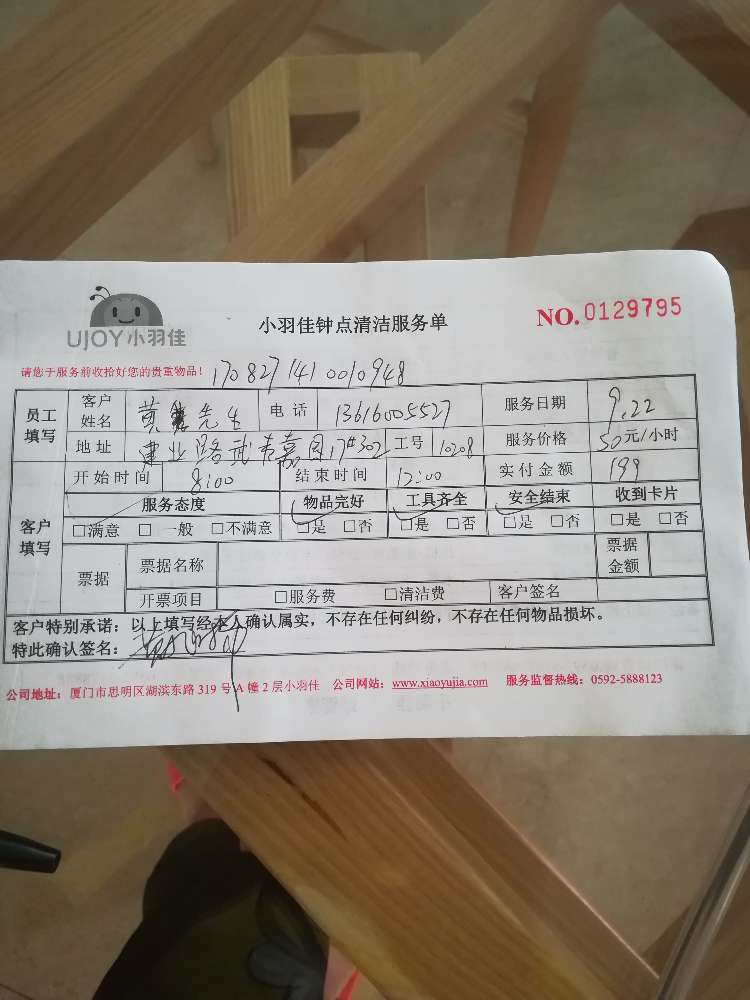 UJOY小羽佳
小羽佳钟点清洁服务单
NO.0129795
请您于服务前收拾好您的贵重物品! 1708271410010948
员工填写 客户姓名 黄 先生 电话 13616005527 服务日期 9.22
地址 建业路武 嘉园17#302 工号 10208 服务价格 50元/小时
开始时间 8:00 结束时间 12:00 实付金额 199
客户填写 服务态度 物品完好 工具齐全 安全结束 收到卡片
□满意 □一般 □不满意 □是 □否 □是 □否 □是 □否 □是 □否
票据 票据名称 票据金额
开票项目 □服务费 □清洁费 客户签名
客户特别承诺:以上填写经本人确认属实,不存在任何纠纷,不存在任何物品损坏。
特此确认签名:
公司地址:厦门市思明区湖滨东路 319 号 A 幢 2 层小羽佳 公司网站:www.xiaoyujia.com 服务监督热线:0592-5888123